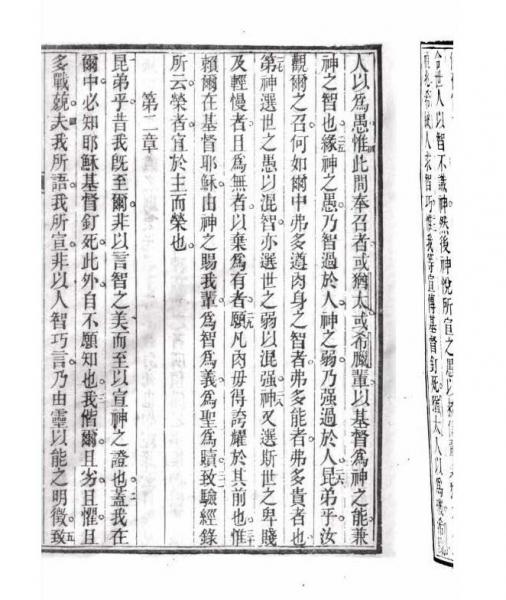 世人以智不識神然後神悅所宣之愚以
人求智巧惟我等宣傳基督釘死猶太人以為礙希
人以為愚惟此間奉召者或猶太或希臘輩以基督為神之能兼
神之智也緣神之愚乃智過於人神之弱乃强過於人昆弟乎汝
觀爾之召何如爾中弗多遵肉身之智者弗多能者弗多貴者也
第神選世之愚以混智亦選世之弱以混强神又選斯世之卑賤
及輕慢者且為無者以棄為有者願凡肉毋得誇耀於其前也惟
賴爾在基督耶穌由神之賜我輩為智為義為聖為贖致驗經錄
所云榮者宜於主而榮也
第二章
昆弟乎昔我旣至爾非以言智之美而至以宣神之證也蓋我在
爾中必知耶穌基督釘死此外自不願知也我偕爾且劣且懼且
多戰兢夫我所語我所宣非以人智巧言乃由靈以能之明徵致